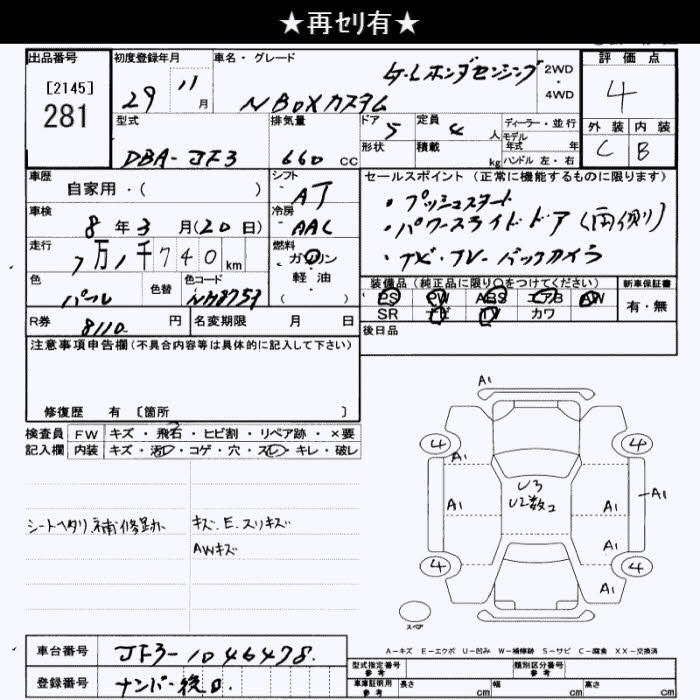 ★再セリ有★
出品番号
[2145]
281
初度登録年月
29 11月
車名・グレード
G・Lホンダセンシング
N BOXカスタム
2WD
・
4WD
評価点
4
外装 内装
C B
型式
DBA-JF3
排気量
660 cc
ドア
5
定員
4人
ディーラー・並行
モデル
年式 年
形状
積載
kg
ハンドル 左・右
車歴
自家用・( )
シフト
AT
セールスポイント (正常に機能するものに限ります)
・プッシュスタート
・パワースライドドア(両側)
・ナビ・フルバックカメラ
車検
8年3月(20日)
冷房
AAC
走行
7万1千740km
燃料
ガソリン
・
軽・油
( )
色
パール
色替
色コード
NH875P
装備品 (純正品に限り○をつけてください)
PS PW ABS エアB AW
SR ナビ TV カワ
新車保証書
有・無
R券
8110円
名変期限 月 日
後日品
注意事項申告欄(不具合内容等は具体的に記入して下さい)
修復歴 有 〔箇所 〕
検査員
記入欄
FW キズ・飛石・ヒビ割・リペア跡・×要
内装 キズ・汚レ・コゲ・穴・スレ・キレ・破レ
シートヘタリ、補修跡小
キズ、E、スリキズ
AWキズ
A1
4
4
A1
U3
U2数コ
A1
A1
A1
A1
4
4
A1
スペア
A-キズ E-エクボ U-凹み W-補修跡 S-サビ C-腐食 XX-交換済
車台番号
JF3-1046478
登録番号
ナンバー後日
型式指定番号
参考
類別区分番号
参考
車庫証明用
参考
長さ cm
幅 cm
高さ cm